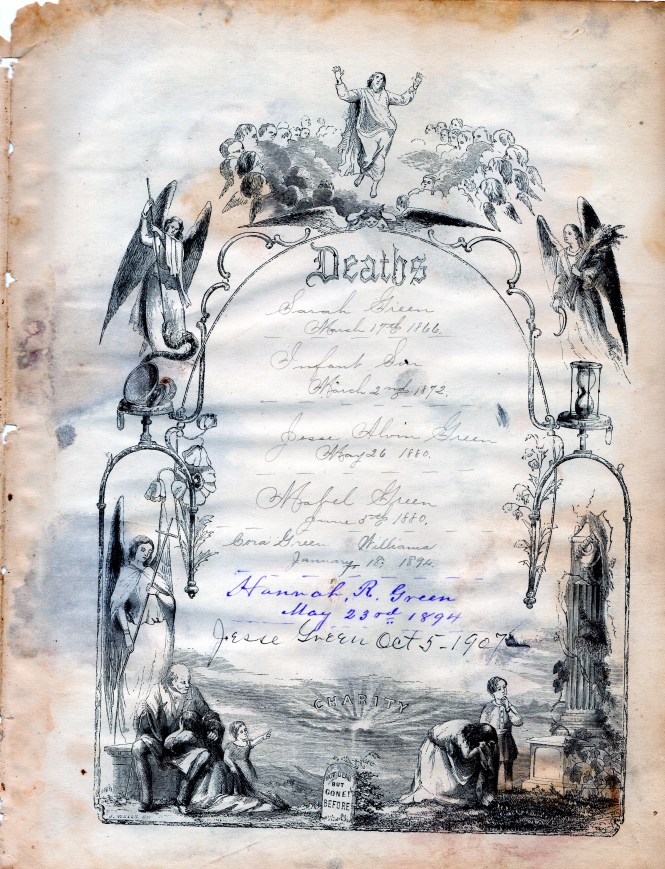 Deaths
Sarah Green
March 17th 1866.
Infant Son
March 2nd 1872.
Jesse Alvin Green
May 26 1880.
Mabel Green
June 5th 1880.
Cora Green Williams
January 18, 1894.
Hannah, R. Green
May 23rd 1894
Jesse Green Oct 5-1907
CHARITY
NOT LOST
BUT
GONE!
BEFORE